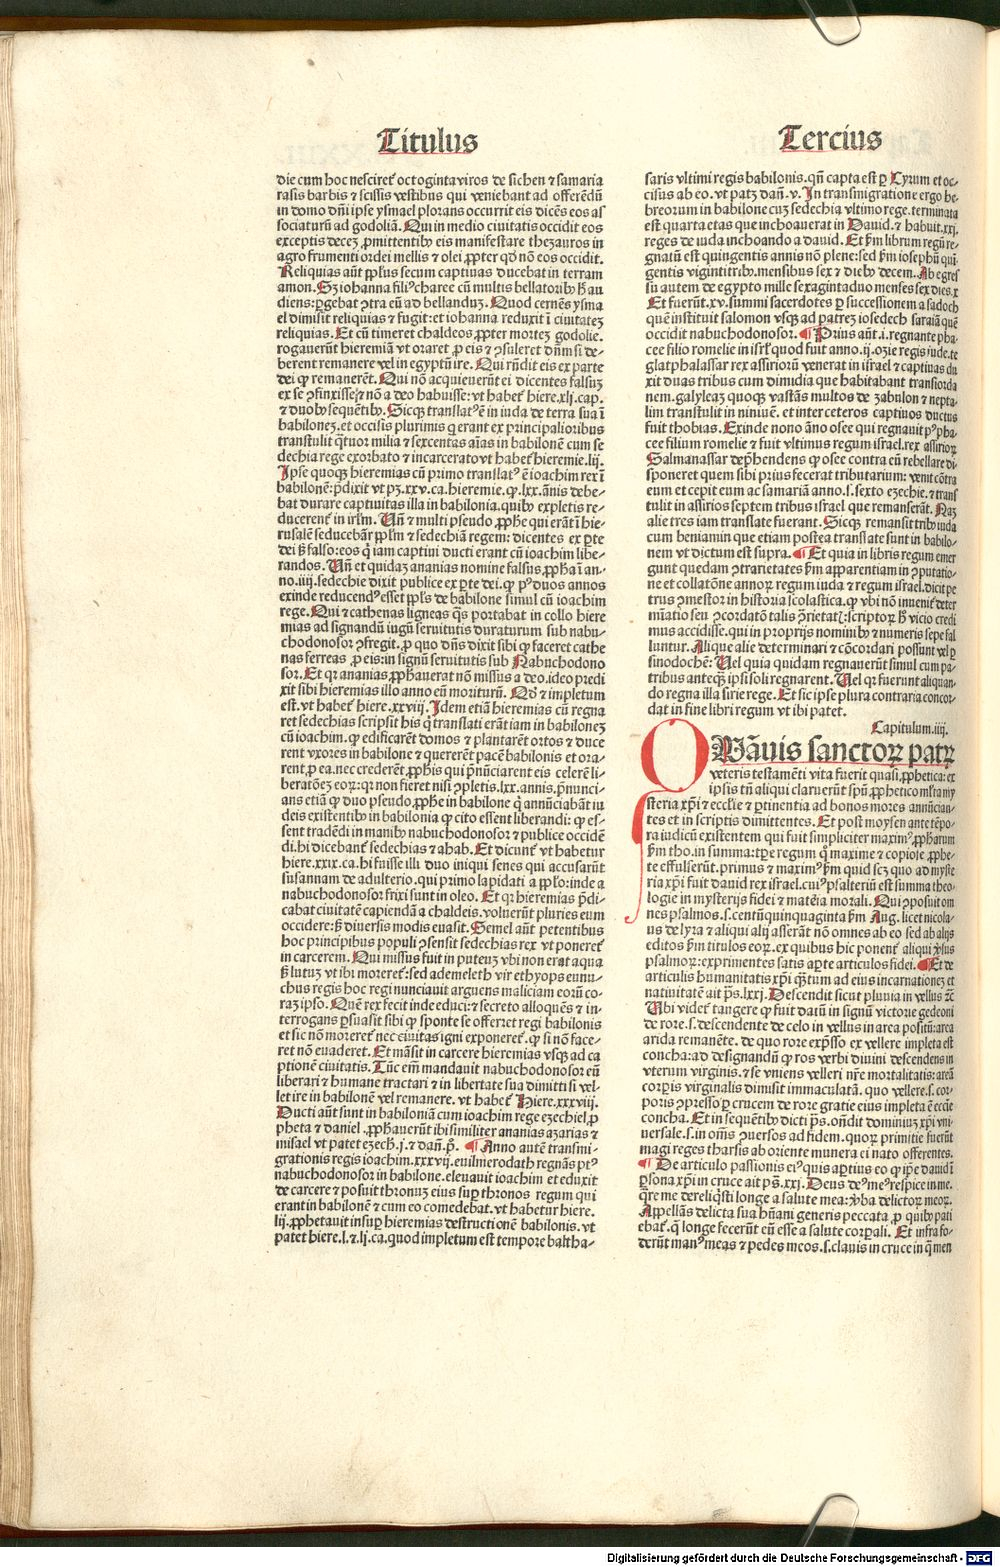 Titulus
Tercius
die cum hoc nesciret̄ octoginta viros de sichen ⁊ samaria
rasis barbis ⁊ scissis vestibus qui veniebant ad offerēdū
in domo dn̄i ipse ysmael plorans occurrit eis dicēs eos as
sociaturū ad godoliā. Qui in medio ciuitatis occidit eos
exceptis decez ꝓmittentibꝫ eis manifestare thezauros in
agro frumenti ordei mellis ⁊ olei ꝓpter qd̓ nō eos occidit.
Reliquias aūt ppl̓us secum captiuas ducebat in terram
amon. Sꝫ iohanna filiꝰ charee cū multis bellatoribꝫ h̄ au
diens: ꝑgebat ꝯtra eū ad bellanduꝫ. Quod cernēs ysma
el dimisit reliquias ⁊ fugit: et iohanna reduxit ī ciuitateꝫ
reliquias. Et cū timeret chaldeos ꝓpter morteꝫ godolie.
rogauerūt hieremiā vt oraret ꝓ eis ⁊ ꝯsuleret dn̄m si de-
berent remanere vel in egyptū ire. Qui rn̄dit eis ex parte
dei ꝙ remanerēt. Qui nō acquieuerūt ei dicentes falsuꝫ
ex se ꝯfinxisse ⁊ nō a deo habuisse: vt habet̄ hiere. xlj. cap.
⁊ duobꝫ sequentibꝫ. Sicqꝫ translatꝰ ē in iuda de terra sua ī
babiloneꝫ. et occisis plurimis q̄ erant ex principalioribus
transtulit q̄tuor milia ⁊ sexcentas aīas in babilonē cum se
dechia rege exorbato ⁊ incarcerato vt habet̄ hieremie. lij.
Ipse quoqꝫ hieremias cū primo translatꝰ ē ioachim rex ī
babilonē: p̄dixit vt pꝫ. xxv. ca. hieremie. ꝙ. lxx. ānis debe-
bat durare captiuitas illa in babilonia. quibꝫ expletis re-
ducerent̄ in irlm̄. Un̄ ⁊ multi pseudo ꝓphe qui erāt ī hie-
rusalē seducebāt ppl̓m ⁊ sedechiā regem: dicentes ex ꝑte
dei sꝫ falso: eos q̄ iam captini ducti erant cū ioachim libe-
randos. Un̄ et quidaꝫ ananias nomine falsus ꝓpha ī an-
no. iiij. sedechie dixit publice ex ꝑte dei. ꝙ pꝰ duos annos
exinde reducendꝰ esset ppl̓s de babilone simul cū ioachim
rege. Qui ⁊ cathenas ligneas q̄s portabat in collo hiere
mias ad signandū iugū seruitutis duraturum sub nabu-
chodonosor ꝯfregit. ꝓ quo dn̄s dixit sibi ꝙ faceret cathe
nas ferreas ꝓ eis: in signū seruitutis sub Nabuchodono
sor. Et qꝛ ananias ꝓphauerat nō missus a deo. ideo predi
xit sibi hieremias illo anno eū moriturū. Qd̓ ⁊ impletum
est. vt habet̄ hiere. xxviij. Idem etiā hieremias cū regna
ret sedechias scripsit his q̄ translati erāt iam in babiloneꝫ
cū ioachim. ꝙ edificarēt domos ⁊ plantarēt ortos ⁊ duce
rent vxores in babilone ⁊ quererēt pacē babilonis et ora-
rent. ꝓ ea. nec crederēt ꝓphis qui p̄nūciarent eis celerē li-
beratōeꝫ eoꝝ: qꝛ non fieret nisi ꝯpletis. lxx. annis. p̄nunci-
ans etiā ꝙ duo pseudo ꝓphe in babilone q̄ annūciabāt iu
deis existentibꝫ in babilonia ꝙ cito essent liberandi: ꝙ es-
sent tradēdi in manibꝫ nabuchodonosor ⁊ publice occidē
di. hi dicebant̄ sedechias ⁊ ahab. Et dicunt̄ vt habetur
hiere. xxix. ca. hi fuisse illi duo iniqui senes qui accusarūt
susannam de adulterio. qui primo lapidati a ppl̓o: inde a
nabuchodonosor frixi sunt in oleo. Et qꝛ hieremias p̄di-
cabat ciuitatē capiendā a chaldeis. voluerūt pluries eum
occidere: sꝫ diuersis modis euasit. Semel aūt petentibus
hoc principibus populi ꝯsensit sedechias rex vt poneret̄
in carcerem. Qui missus fuit in puteuꝫ vbi non erat aqua
sꝫ lutuꝫ vt ibi moreret̄: sed ademeleth vir ethyops eunu-
chus regis hoc regi nunciauit arguens maliciam eorū co-
raꝫ ipso. Quē rex fecit inde educi: ⁊ secreto alloquēs ⁊ in-
terrogans ꝑsuasit sibi ꝙ sponte se offerret regi babilonis
et sic nō moreret̄ nec ciuitas igni exponeret̄. ꝙ si nō face-
ret nō euaderet. Et māsit in carcere hieremias vsqꝫ ad ca
ptionē ciuitatis. Tūc em̄ mandauit nabuchodonosor eū
liberari ⁊ humane tractari ⁊ in libertate sua dimitti si vel-
let ire in babilonē vel remanere. vt habet̄ Hiere. xxxviij.
Ducti aūt sunt in babiloniā cum ioachim rege ezechiel ꝓ
pheta ⁊ daniel. ꝓphauerūt ibi similiter ananias azarias ⁊
misael vt patet ezech. j. ⁊ dan̄. p̄. ¶ Anno autē transmi-
grationis regis ioachim. xxxvij. euilmerodath regnās ptꝰ
nabuchodonosor in babilone. eleuauit ioachim et eduxit
de carcere ⁊ posuit thronuꝫ eius suꝑ thronos regum qui
erant in babilonē ⁊ cum eo comedebat. vt habetur hiere.
lij. ꝓphetauit insuꝑ hieremias destructionē babilonis. vt
patet hiere. l. ⁊ lj. ca. quod impletum est tempore baltha-
saris vltimi regis babilonis. qn̄ capta est ꝑ Cyrum et oc-
cisus ab eo. vt patꝫ dan̄. v. In transmigratione ergo he-
breorum in babilonē cuꝫ sedechia vltimo rege. terminata
est quarta etas que inchoauerat in Dauid. ⁊ habuit. xxj.
reges de iuda inchoando a dauid. Et s̄m librum regū re-
gnatū est quingentis annis nō plene: sed s̄m iosephū qui
gentis vigintitribꝫ. mensibus sex ⁊ diebꝫ decem. Ab egres
su autem de egypto mille sexagintaduo menses sex dies. x
Et fuerūt. xv. summi sacerdotes ꝑ successionem a sadoch
quē instituit salomon vsqꝫ ad patreꝫ iosedech saraiā quē
occidit nabuchodonosor. ¶ Prius aūt. i. regnante pha-
cee filio romelie in isrl̓ quod fuit anno. ij. ozie regis iude. te
glatphalassar rex assirioꝝ venerat in israel ⁊ captiuas du
xit duas tribus cum dimidia que habitabant transiorda
nem. galyleaꝫ quoqꝫ vastās multos de zabulon ⁊ nepta-
lim transtulit in niniuē. et inter ceteros captiuos ductus
fuit thobias. Exinde nono āno osee qui regnauit pꝰ pha-
cee filium romelie ⁊ fuit vltimus regum israel. rex assirioꝝ
Salmanassar dep̄hendens ꝙ osee contra eū rebellare di-
sponeret quem sibi prius fecerat tributarium: venit cōtra
eum et cepit eum ac samariā anno. s. sexto ezechie. ⁊ trans
tulit in assirios septem tribus israel que remanserāt. Naꝫ
alie tres iam translate fuerant. Sicqꝫ remansit tribꝰ iuda
cum beniamin que etiam postea translate sunt in babilo-
nem vt dictum est supra. ¶ Et quia in libris regum emer
gunt quedam ꝯtrarietates s̄m apparentiam in ꝯputatio-
ne et collatōne annoꝝ regum iuda ⁊ regum israel. dicit pe
trus ꝯmestor in historia scolastica. ꝙ vbi nō inuenit̄ deter
minatio seu ꝯcordatō talis ꝯrietatꝭ: scriptoꝝ h̄ vicio credi
mus accidisse. qui in proprijs nominibꝫ ⁊ numeris sepe fal
luntur. Alique alie determinari ⁊ cōcordari possunt vel ꝑ
sinodochē: Uel quia quidam regnauerūt simul cum pa-
tribus anteqꝫ ipsi soli regnarent. Uel qꝛ fuerunt aliquan-
do regna illa sine rege. Et sic ipse plura contraria concor-
dat in fine libri regum vt ibi patet.
Capitulum. iiij.
QUāuis sanctoꝝ patꝝ
veteris testamēti vita fuerit quasi ꝓphetica: ex
ipsis tn̄ aliqui claruerūt spū ꝓphetico ml̓ta my
steria xp̄i ⁊ ecclīe ⁊ ꝑtinentia ad bonos mores annūcian-
tes et in scriptis dimittentes. Et post moysen ante tēpo-
ra iudicū existentem qui fuit simpliciter maximꝰ ꝓpharum
s̄m tho. in summa: tꝑe regum q̄ maxime ⁊ copiole ꝓphe-
te effulserūt. primus ⁊ maximꝰ s̄m quid scꝫ quo ad myste
ria xp̄i fuit dauid rex israel. cuiꝰ psalteriū est summa theo-
logie in mysterijs fidei ⁊ materia morali. Qui ꝯposuit om
nes psalmos. s. centū quinquaginta s̄m Aug. licet nicola-
us de lyra ⁊ aliqui alij asserāt nō omnes ab eo sed ab alijs
editos s̄m titulos eoꝝ. ex quibus hic ponent̄ aliqui v̓sus
psalmoꝝ: exprimentes satis aꝑte articulos fidei. ¶ Et de
articulis humanitatis xp̄i q̄ꝫtum ad eius incarnationeꝫ et
natiuitatē ait ps̄. lxxj. Descendit sicut pluuia in vellus ⁊c̄
Ubi videt̄ tangere ꝙ fuit datū in signū victorie gedeoni
de rore. s. descendente de celo in vellus in area positū: area
arida remanēte. de quo rore exp̄sso ex vellere impleta est
concha: ad designandū ꝙ ros verbi diuini descendens in
vterum virginis. ⁊ se vniens velleri nr̄e mortalitatis: areā
corꝑis virginalis dimisit immaculatā. quo vellere. s. cor-
poris ꝯpresso ꝑ crucem de rore gratie eius impleta ē ecclīe
concha. Et in sequentibꝫ dicti ps̄. on̄dit dominiuꝫ xp̄i vni-
uersale. s. in om̄s ꝯuersos ad fidem. quoꝝ primitie fuerūt
magi reges tharsis ab oriente munera ei nato offerentes.
¶ De articulo passionis eiꝰ quis aꝑtius eo ꝙ ip̄e dauid ī
ꝑsona xp̄i in cruce ait ps̄. xxj. Deus deꝰ meꝰ respice in me.
q̄re me dereliq̄sti longe a salute mea: v̓ba delictoꝝ meoꝝ.
Appellās delicta sua hūani generis peccata ꝓ quibꝫ pati
ebat̄. q̄ longe fecerūt eū esse a salute corꝑali. Et infra fo-
derūt manꝰ meas ⁊ pedes meos. s. clauis in cruce in q̄ men
Digitalisierung gefördert durch die Deutsche Forschungsgemeinschaft - DFG